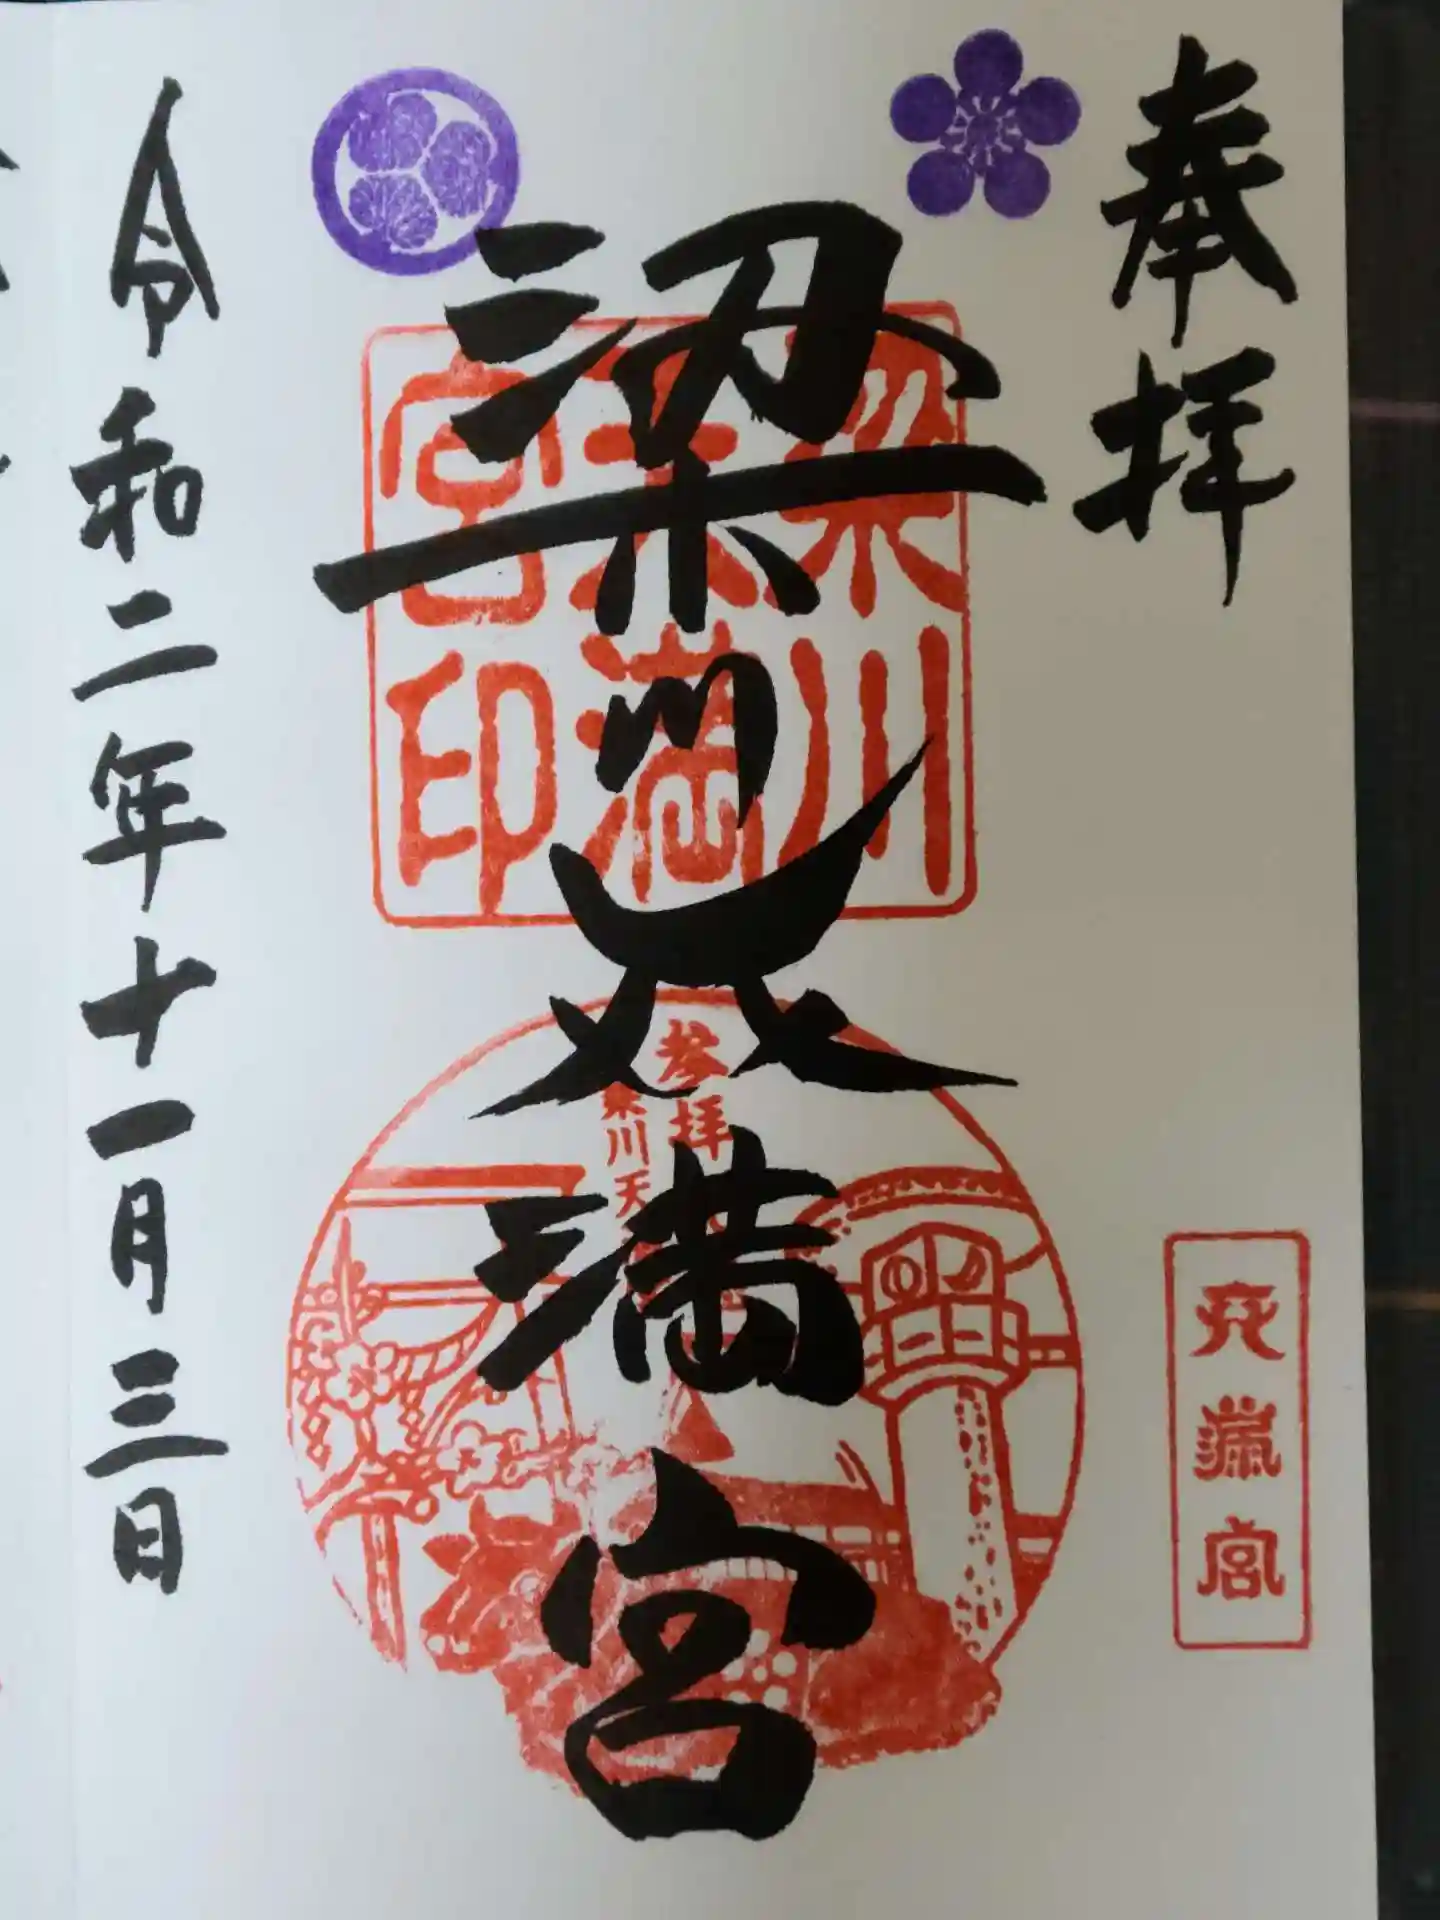 奉拝
天満宮
梁川天満宮
梁川
天満
宮印
参拝
梁川天
令和二年十一月三日